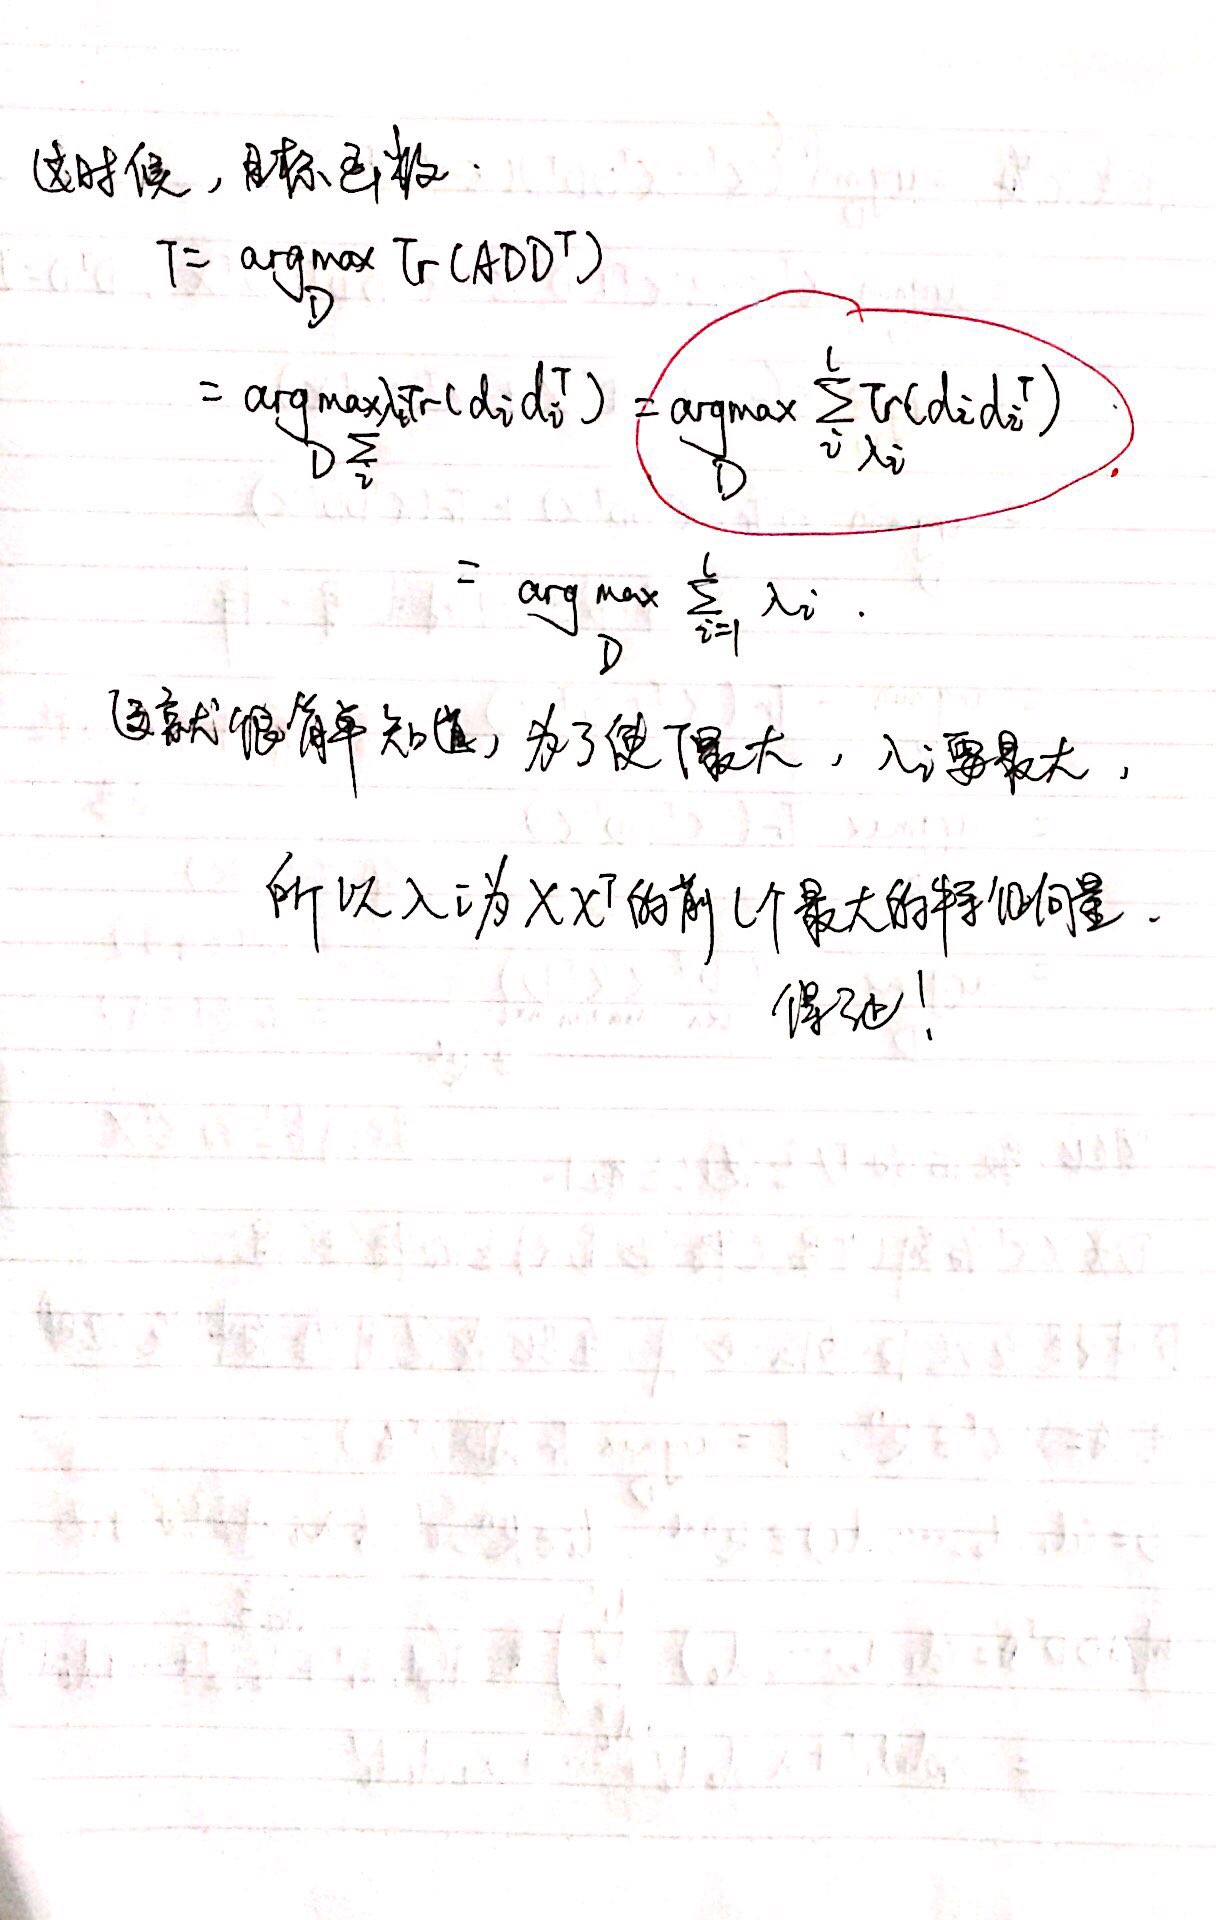 这时候，目标函数.
T = argmax Tr(ADDᵀ)
D
= argmax λᵢTr(dᵢdᵢᵀ) = argmax Σ Tr(dᵢdᵢᵀ)
D Σ i D l i λᵢ
= argmax Σ λᵢ .
D l i=1
这就很简单知道，为了使T最大，λᵢ要最大，
所以λᵢ为XXᵀ的前l个最大的特征向量.
得证！